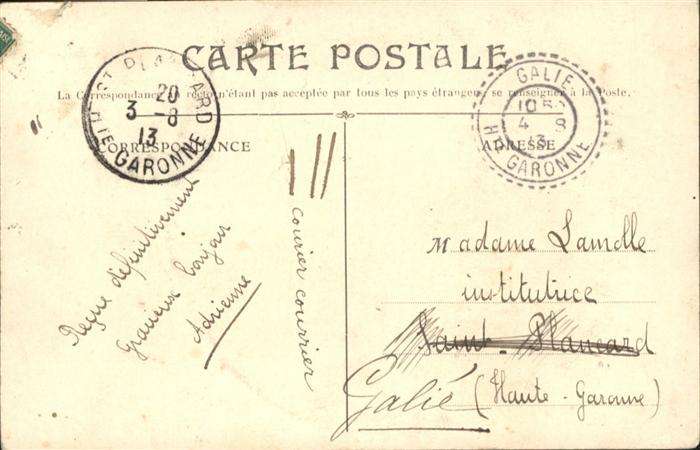 CARTE POSTALE
La Correspondance au recto n'étant pas acceptée par tous les pays étrangers, se renseigner à la Poste.
ST PLANCARD
20
3 -8
13
HTE GARONNE
GALIE
10 55
4 8
13
HTE GARONNE
CORRESPONDANCE
ADRESSE
Reçue définitivement
Adrienne
courier courrier
Madame Lamolle
institutrice
Saint-Plancard
Galié (Haute-Garonne)